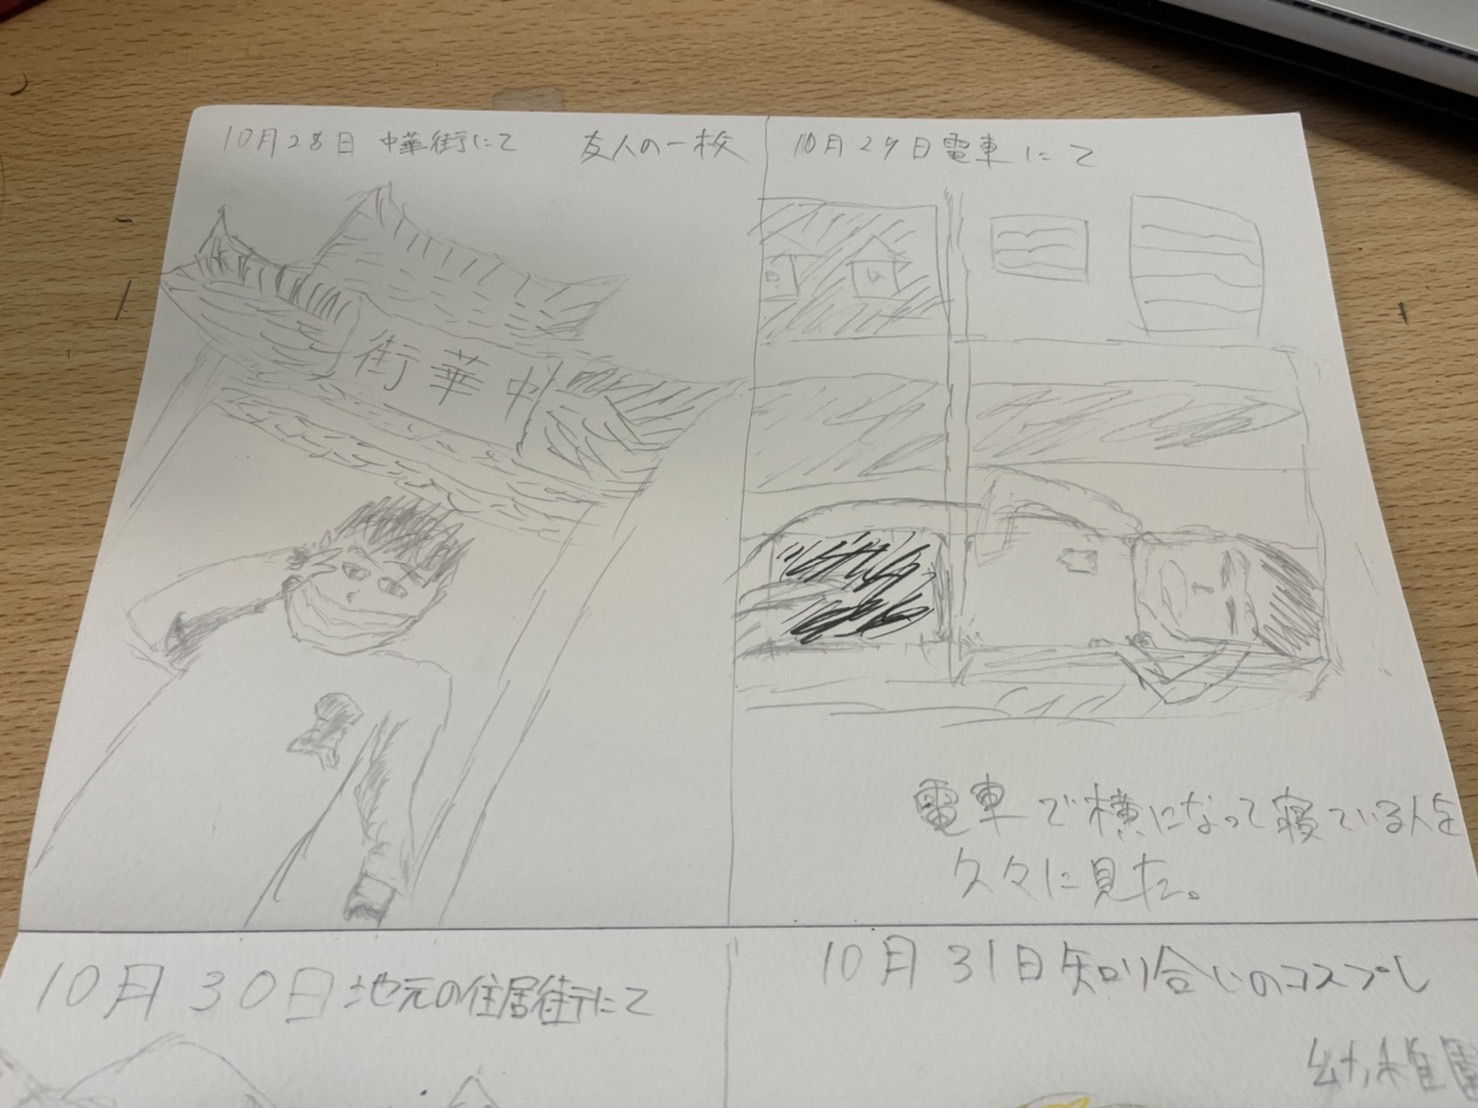 10月28日 中華街にて 友人の一枚
街華中
10月29日電車にて
電車で横になって寝ている人を
久々に見た。
10月30日地元の住居街にて
10月31日知り合いのコスプレ
幼稚園